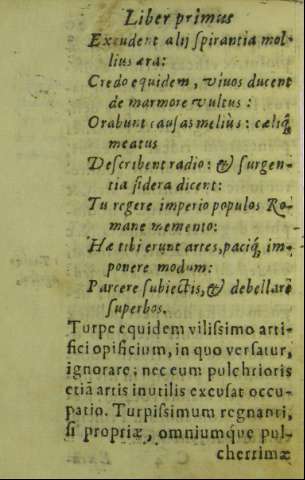 Liber primus
Excudent alij spirantia mol-
lius æra:
Credo equidem, viuos ducent
de marmore vultus:
Orabunt causas meliùs: cæliq́;
meatus
Describent radio: & surgen-
tia sidera dicent:
Tu regere imperio populos Ro-
mane memento:
Hæ tibi erunt artes, paciq́; im-
ponere modum:
Parcere subiectis, & debellare
superbos.
Turpe equidem vilissimo arti-
fici opificium, in quo versatur,
ignorare; nec eum pulchrioris
etiā artis inutilis excusat occu-
patio. Turpissimum regnanti,
si propriæ, omniumque pul-
cherrimæ